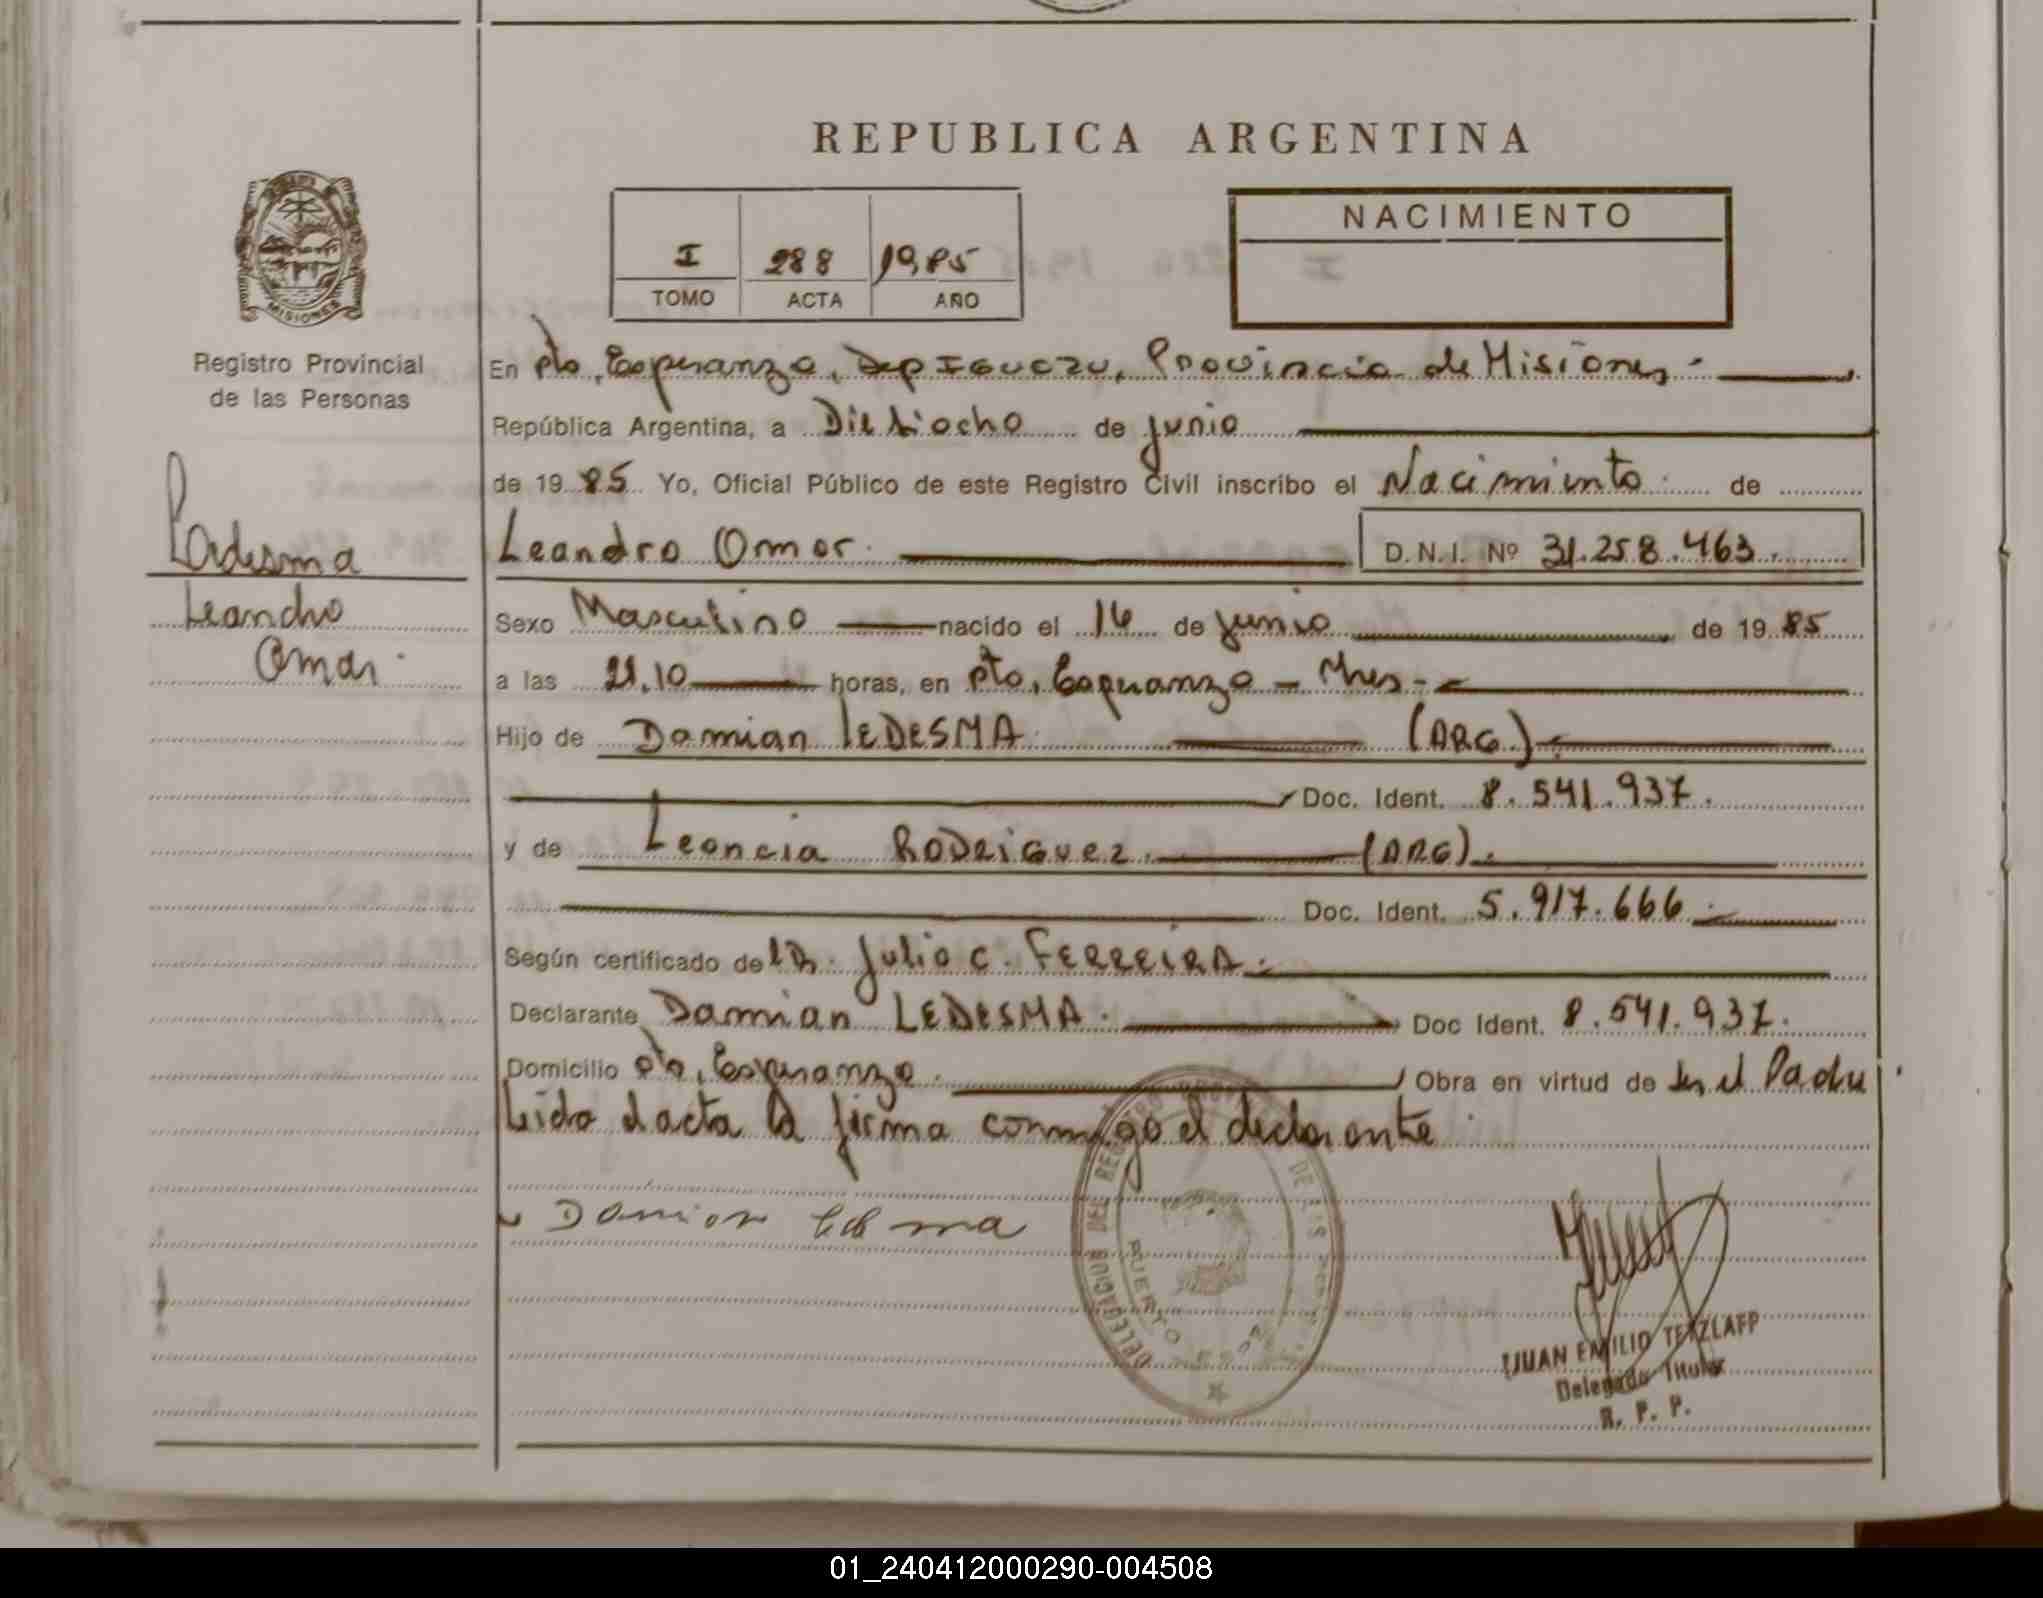 REPUBLICA ARGENTINA
NACIMIENTO
I 288 1985
TOMO ACTA AÑO
MISIONES
Registro Provincial
de las Personas
Ledesma
Leandro
Omar.
En Pto. Esperanza, Dep IGUAZU, Provincia de Misiones -
República Argentina, a Dieciocho de junio
de 19 85 Yo, Oficial Público de este Registro Civil inscribo el Nacimiento de
Leandro Omar. D.N.I. Nº 31.258.463.
Sexo Masculino nacido el 16 de junio de 19 85
a las 21.10 horas, en Pto. Esperanza - Mnes -
Hijo de Damian LEDESMA (ARG).
Doc. Ident. 8.541.937.
y de Leoncia RODRIGUEZ. (ARG).
Doc. Ident. 5.917.666
Según certificado del Dr. Julio C. FERREIRA.
Declarante Damian LEDESMA. Doc Ident. 8.541.937.
Domicilio Pto. Esperanza. Obra en virtud de ser el Padre
Leida el acta la firma conmigo el declarante
Damian
DELEGACION DEL REGISTRO DE LAS
PUERTO
JUAN EMILIO TETZLAFF
Delegado Titular
R. P. P.
01_240412000290-004508